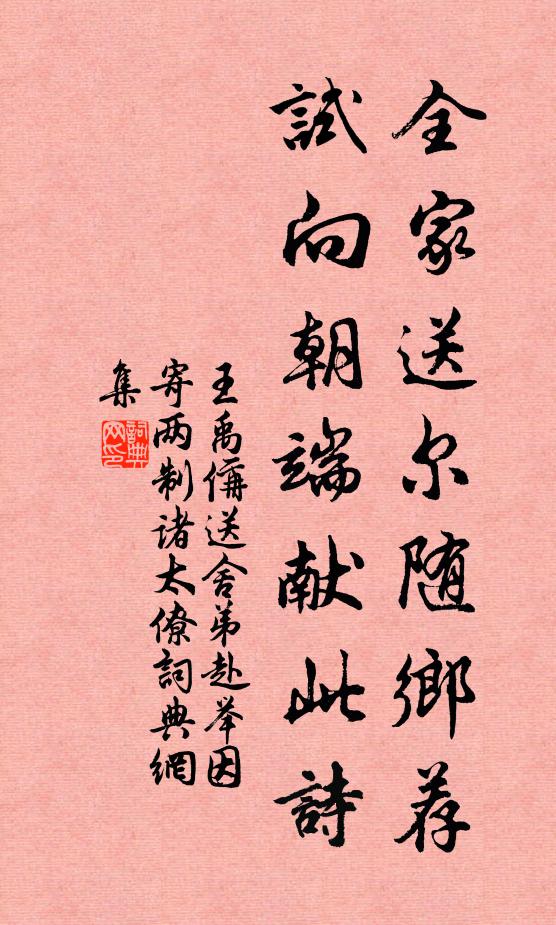 全家送尔随鄉荐
試向朝端献此詩
王禹偁送舍弟赴举因
寄两制诸太僚詞典網
集
詞典网印